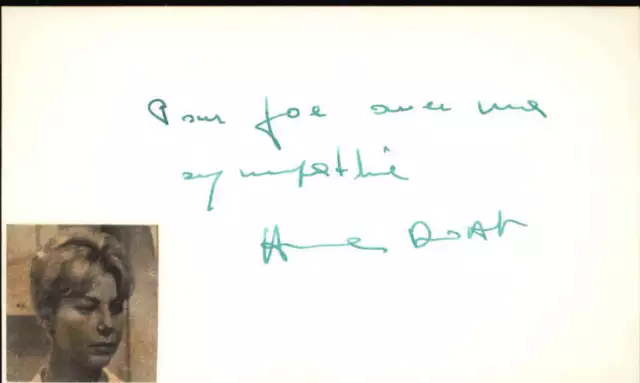 Pour Joe avec ma
sympathie
Anne Doat